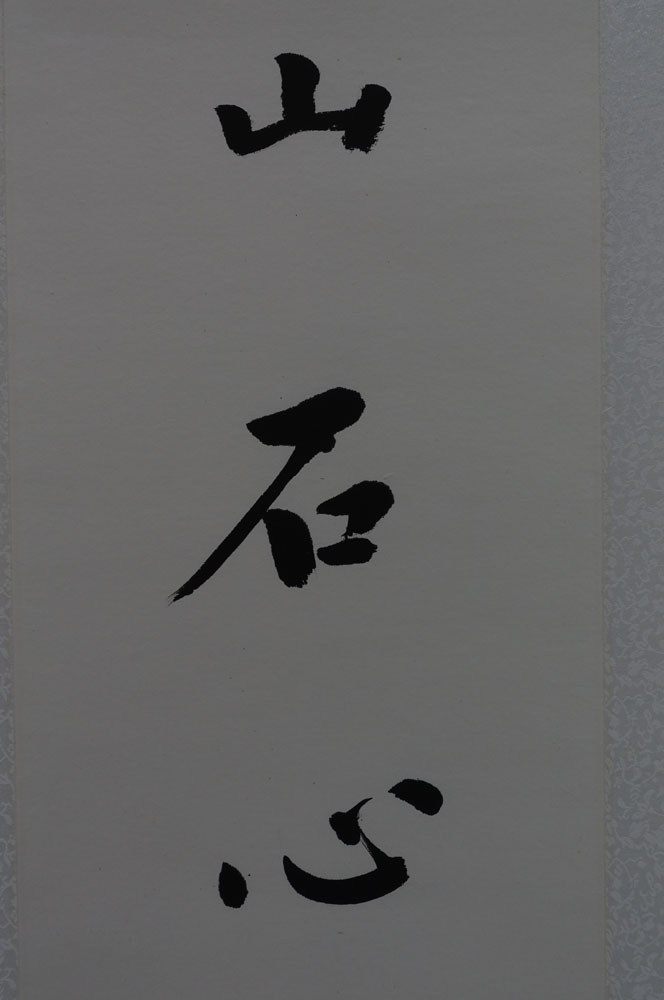 山石心